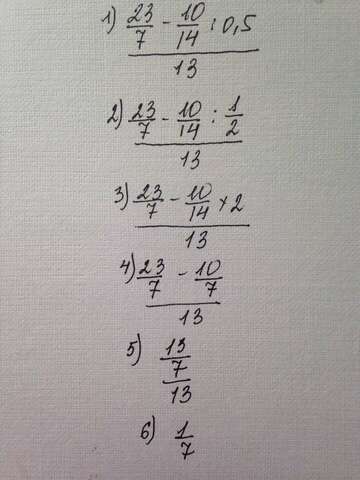 1) 23/7 - 10/14 : 0,5
13
2) 23/7 - 10/14 : 1/2
13
3) 23/7 - 10/14 x 2
13
4) 23/7 - 10/7
13
5) 13/7
13
6) 1/7